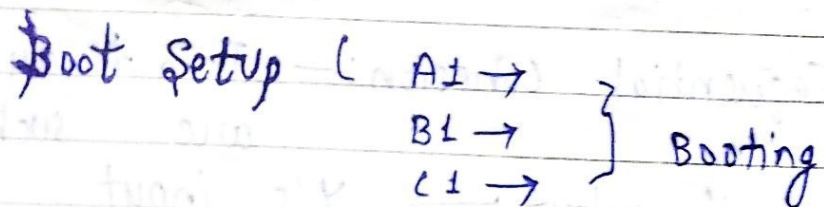 Boot Setup ( A1 →
B1 → } Booting
C1 →